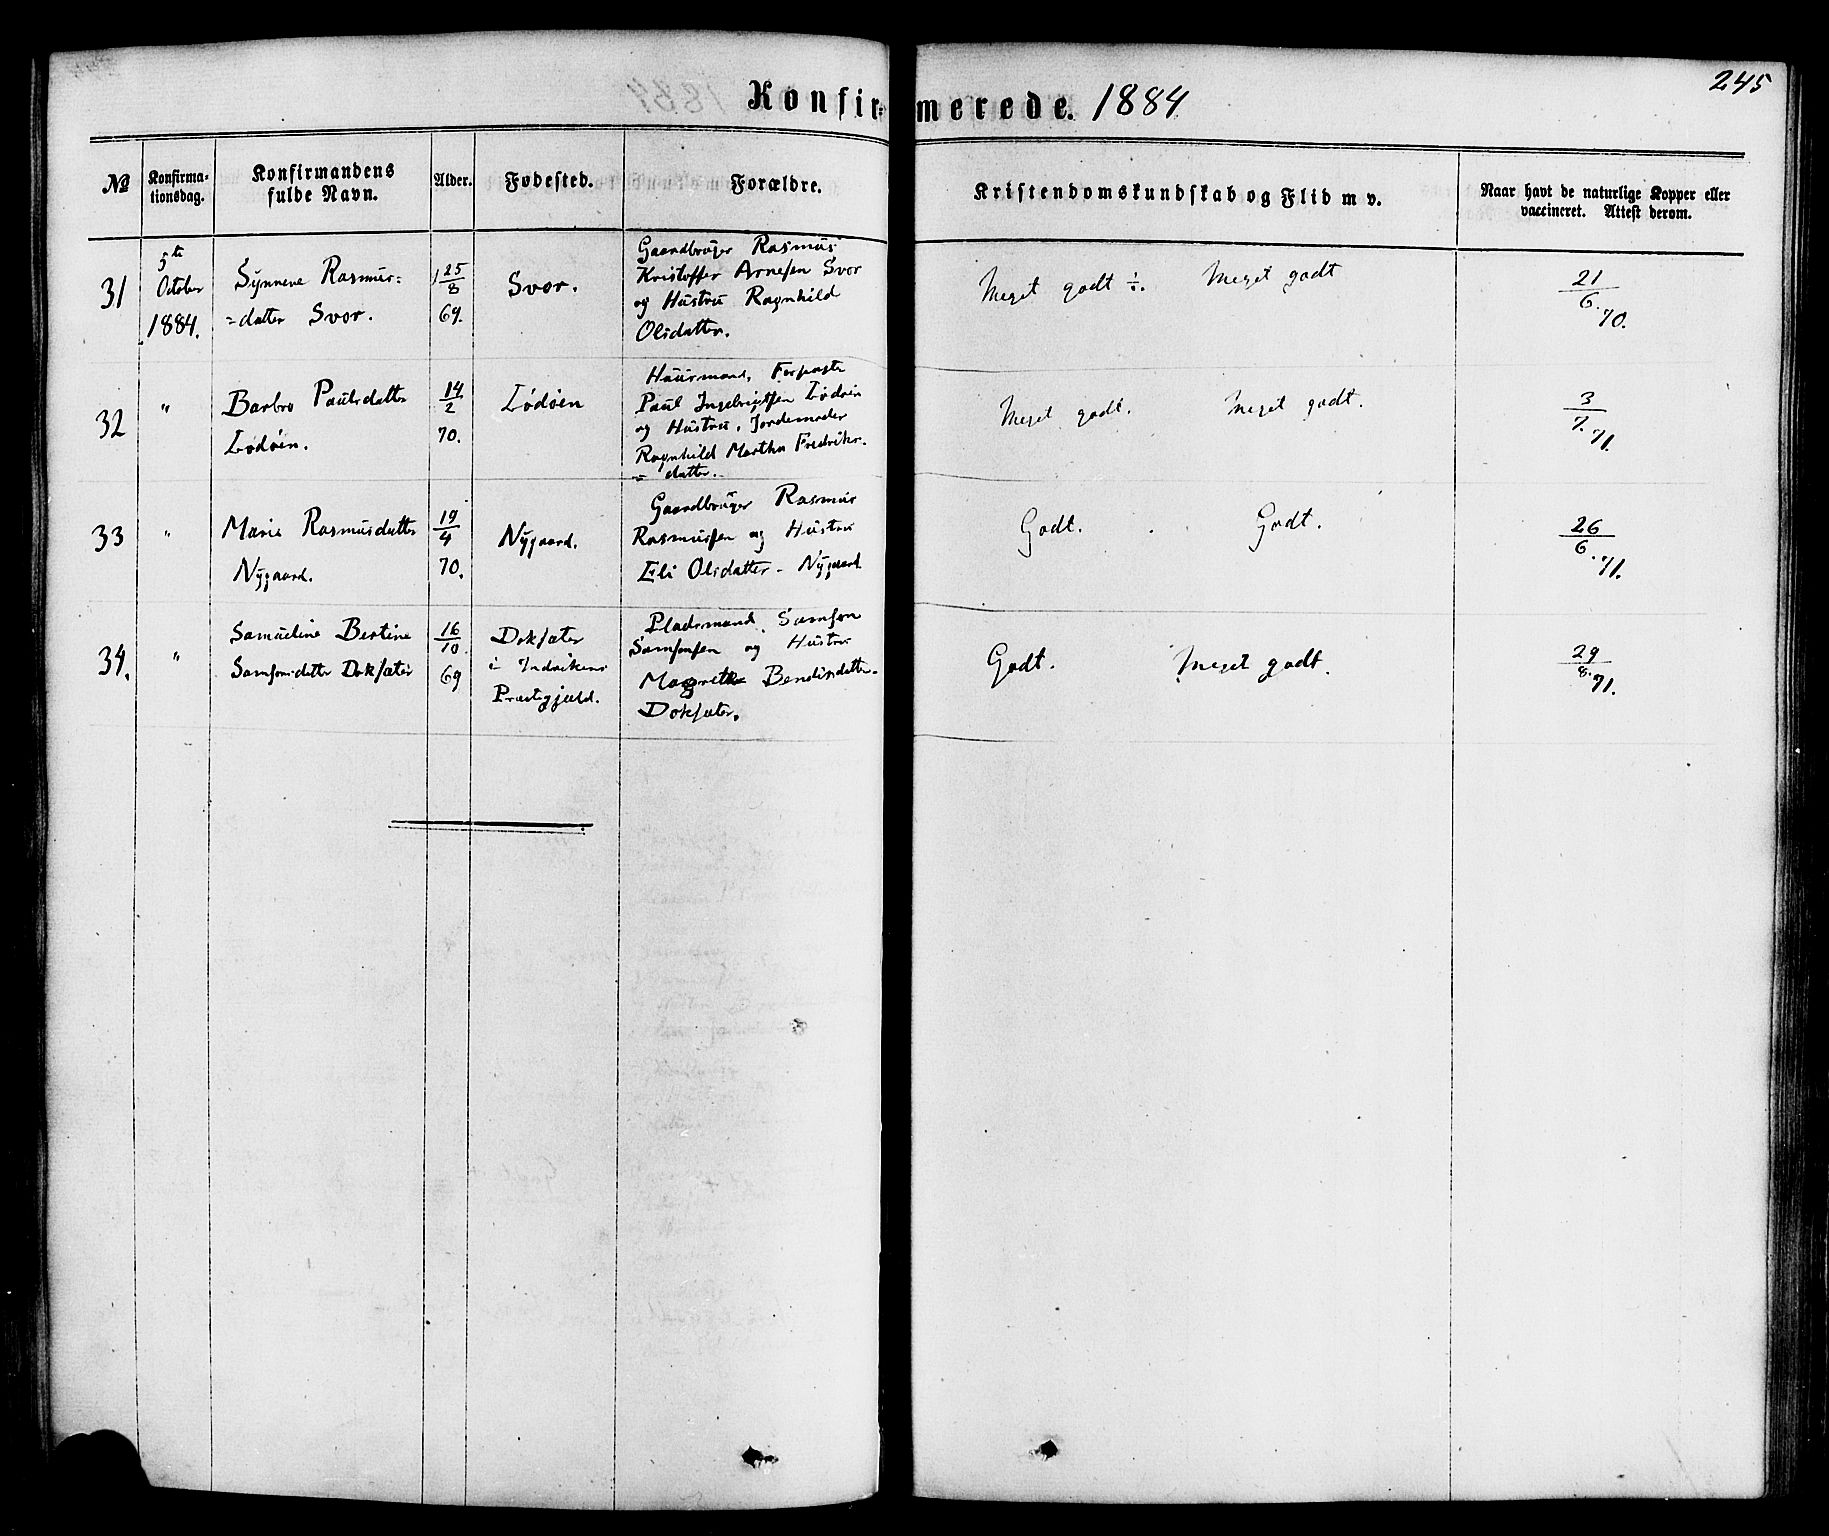 245
Konfirmerede. 1884
№
Konfirma-
tionsdag.
Konfirmandens
fulde Navn.
Alder.
Fødested.
Forældre.
Kristendomskundskab og Flid m v.
Naar havt de naturlige Kopper eller
vaccineret. Attest derom.
31
5te
October
1884.
Synneve Rasmus=
=datter Svor.
25/8
69.
Svor.
Gaardbruger Rasmus
Kristoffer Arnesen Svor
og Hustru Ragnhild
Olsdatter.
Meget godt ÷. Meget godt
21/6. 70.
32
"
Barbro Paulsdatter
Lødøen.
14/2
70.
Lødøen
Huusmand,
Paul Ingebrigtsen Lødøen
og Hustru, Jordemoder
Ragnhild Martha Fredriks.
= datter.
Meget godt. Meget godt.
3/7. 71.
33
"
Marie Rasmusdatter
Nygaard.
19/4
70.
Nygaard.
Gaardbruger Rasmus
Rasmussen og Hustru
Eli Olsdatter - Nygaard
Godt. Godt.
26/6. 71.
34.
"
Samueline Bertine
Samsonsdatter Doksæter
16/10.
69
Doksæter
i Indvikens
Præstegjæld.
Pladsmand Samson
Samsonsen og Hustru
Magrethe Bendixdatter
Doksæter.
Godt. Meget godt.
29/8. 71.